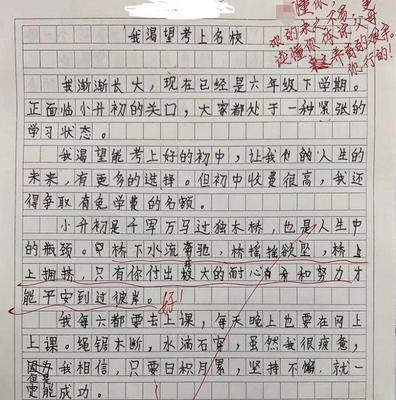 懂你,
你的求之不易
谊懂你体谅父母
养育的艰辛。
你行的!
我渴望考上名校
我渐渐长大,现在已经是六年级下学期。
正面临小升初的关口,大家都处于一种紧张的
学习状态。
我渴望能考上好的初中,让我们的人生的
未来,有更多的选择。但初中收费很高,我还
得争取有免学费的名额。
小升初是千军万马过独木桥,也是人生中
的瓶颈。桥下水流奔驰,桥摇摇欲坠,桥上
上拥挤,只有你付出较大的耐心和努力才
能平安到过彼岸。好!
我每六都要去上课,每天晚上也要在网上
上课。绳锯木断,水滴石穿,虽然我很疲惫,
但是
因为我相信,只要日积月累,坚持不懈,就一
定能成功。